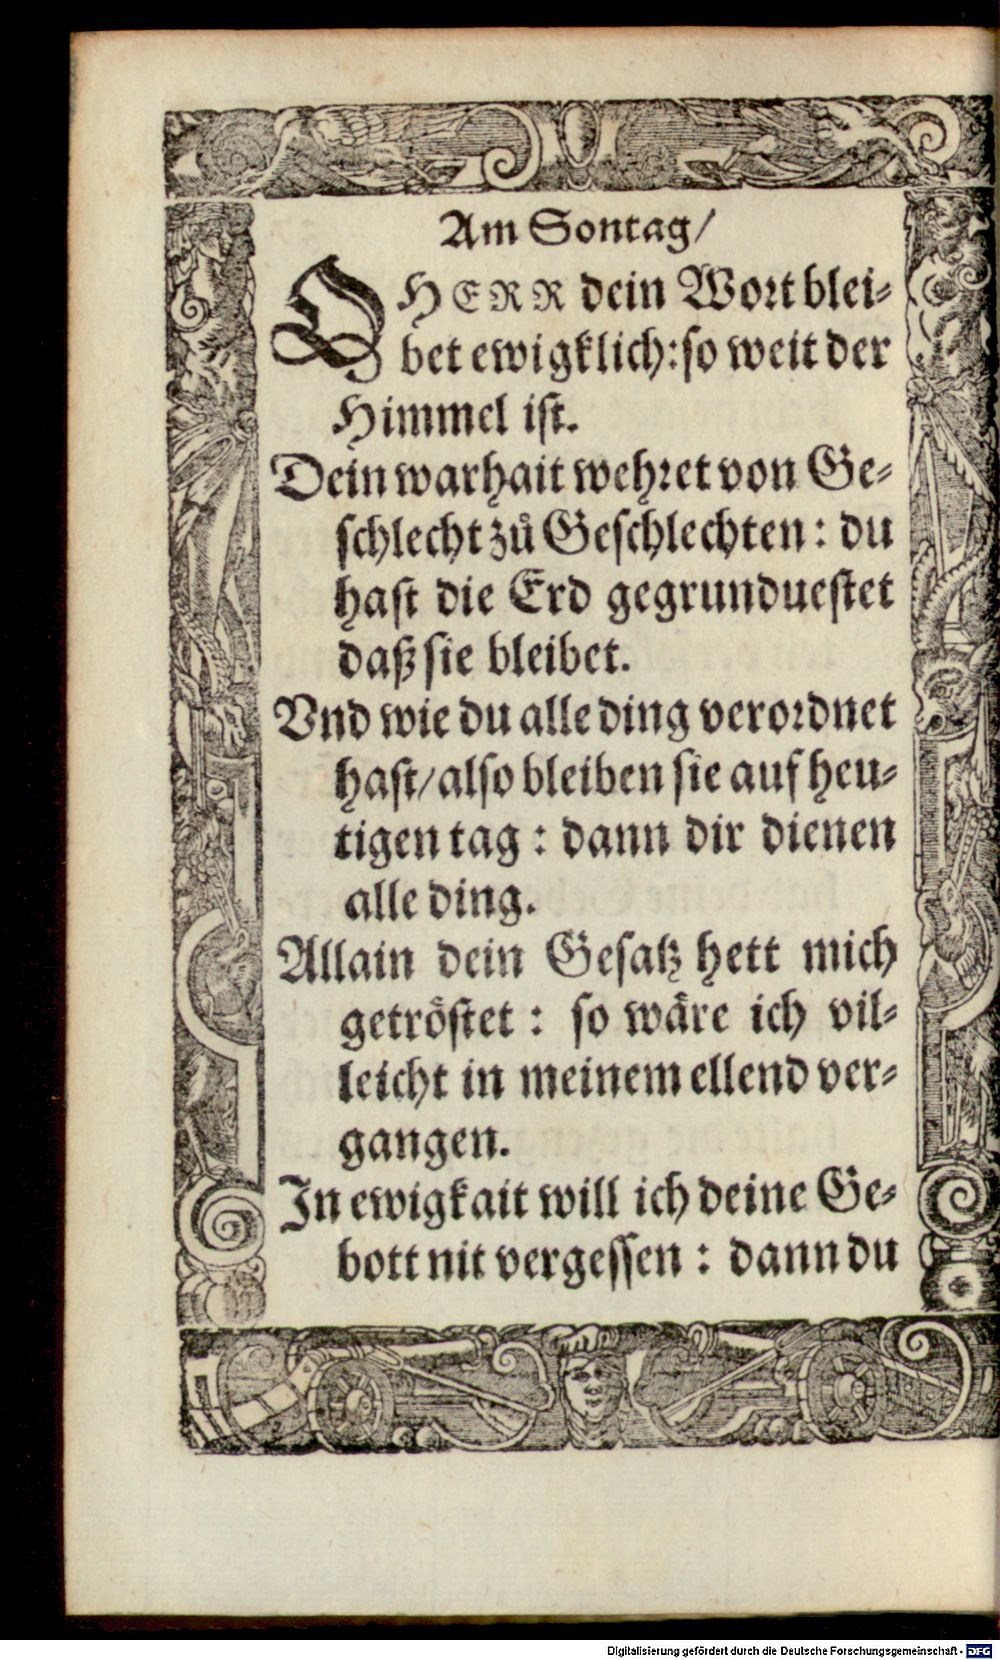 Am Sontag/
O HERR dein Wort blei⸗
bet ewigklich: so weit der
Himmel ist.
Dein warhait wehret von Ge⸗
schlecht zů Geschlechten: du
hast die Erd gegrunduestet
daß sie bleibet.
Vnd wie du alle ding verordnet
hast/ also bleiben sie auf heu⸗
tigen tag: dann dir dienen
alle ding.
Allain dein Gesatz hett mich
getröstet: so wäre ich vil⸗
leicht in meinem ellend ver⸗
gangen.
In ewigkait will ich deine Ge⸗
bott nit vergessen: dann du
Digitalisierung gefördert durch die Deutsche Forschungsgemeinschaft - DFG